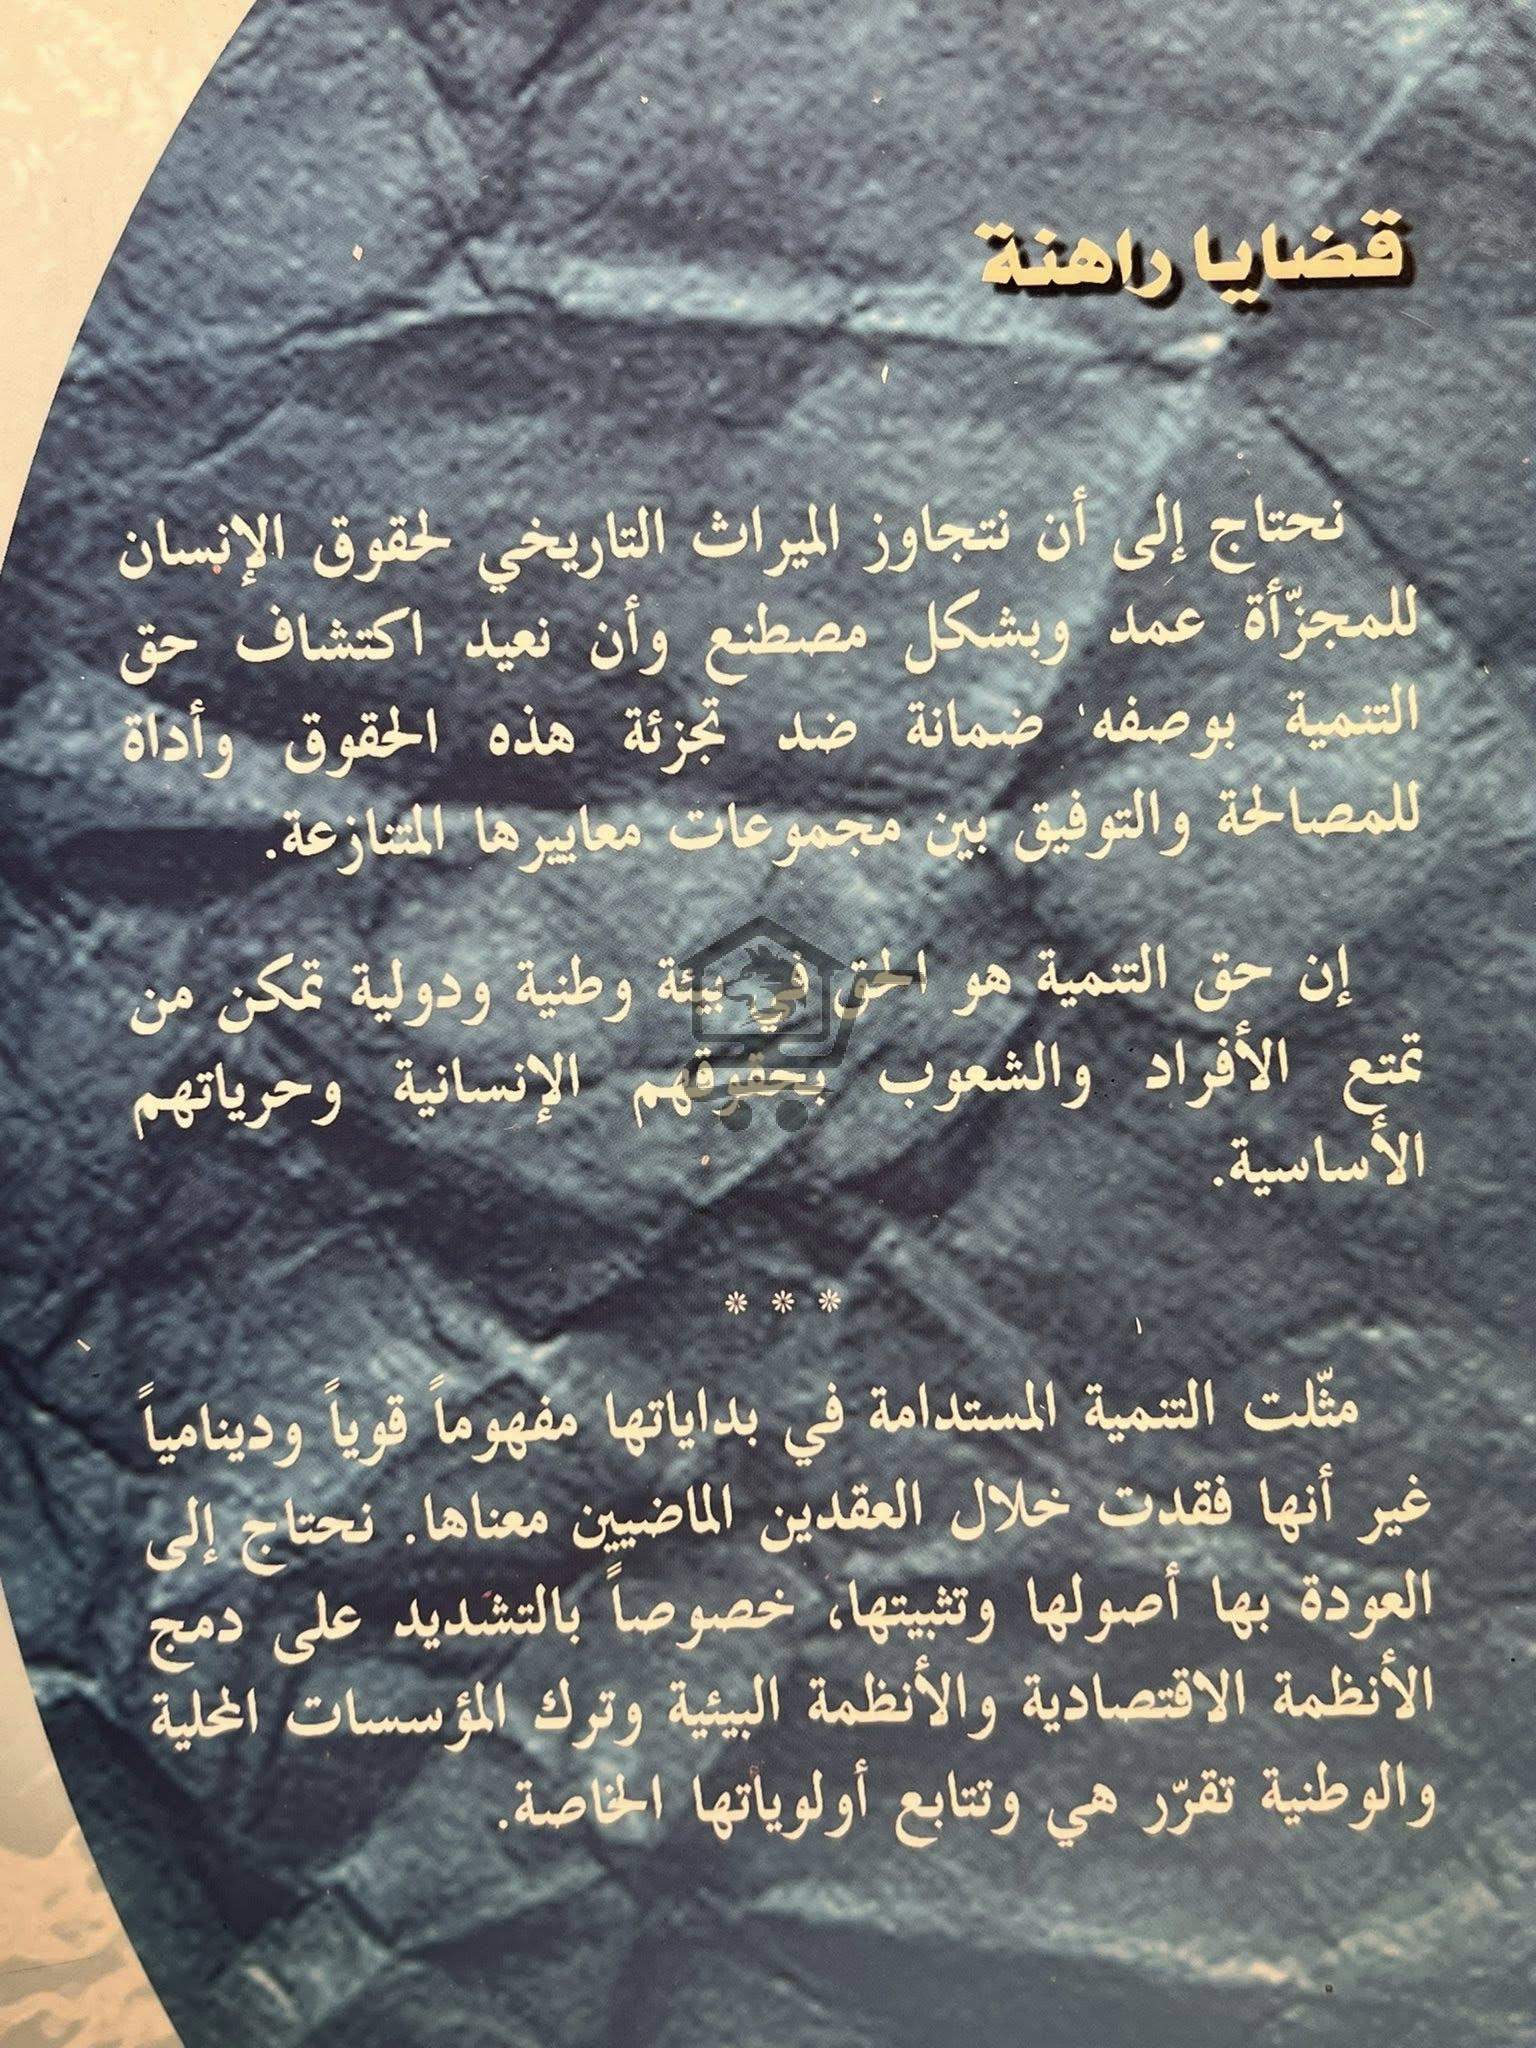 قضايا راهنة
نحتاج إلى أن نتجاوز الميراث التاريخي لحقوق الإنسان
للمجزّأة عمد وبشكل مصطنع وأن نعيد اكتشاف حق
التنمية بوصفه ضمانة ضد تجزئة هذه الحقوق وأداة
للمصالحة والتوفيق بين مجموعات معاييرها المتنازعة.
إن حق التنمية هو الحق في بيئة وطنية ودولية تمكن من
تمتع الأفراد والشعوب بحقوقهم الإنسانية وحرياتهم
الأساسية.
* * *
مثّلت التنمية المستدامة في بداياتها مفهوماً قوياً ودينامياً
غير أنها فقدت خلال العقدين الماضيين معناها. نحتاج إلى
العودة بها أصولها وتثبيتها، خصوصاً بالتشديد على دمج
الأنظمة الاقتصادية والأنظمة البيئية وترك المؤسسات المحلية
والوطنية تقرّر هي وتتابع أولوياتها الخاصة.